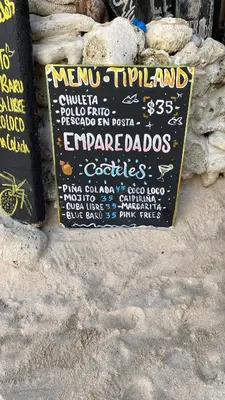 TO
BARU
LIBRE
LOCO
COLADA
MENU • TIPILAND
• CHULETA
• POLLO FRITO
• PESCADO EN POSTA
$35
EMPAREDADOS
Cocteles
PIÑA COLADA 45 COCO LOCO
- MOJITO 35 CAIPIRIÑA
CUBA LIBRE 35 - MARGARITA -
- BLUE BARÚ 35 PINK FREES